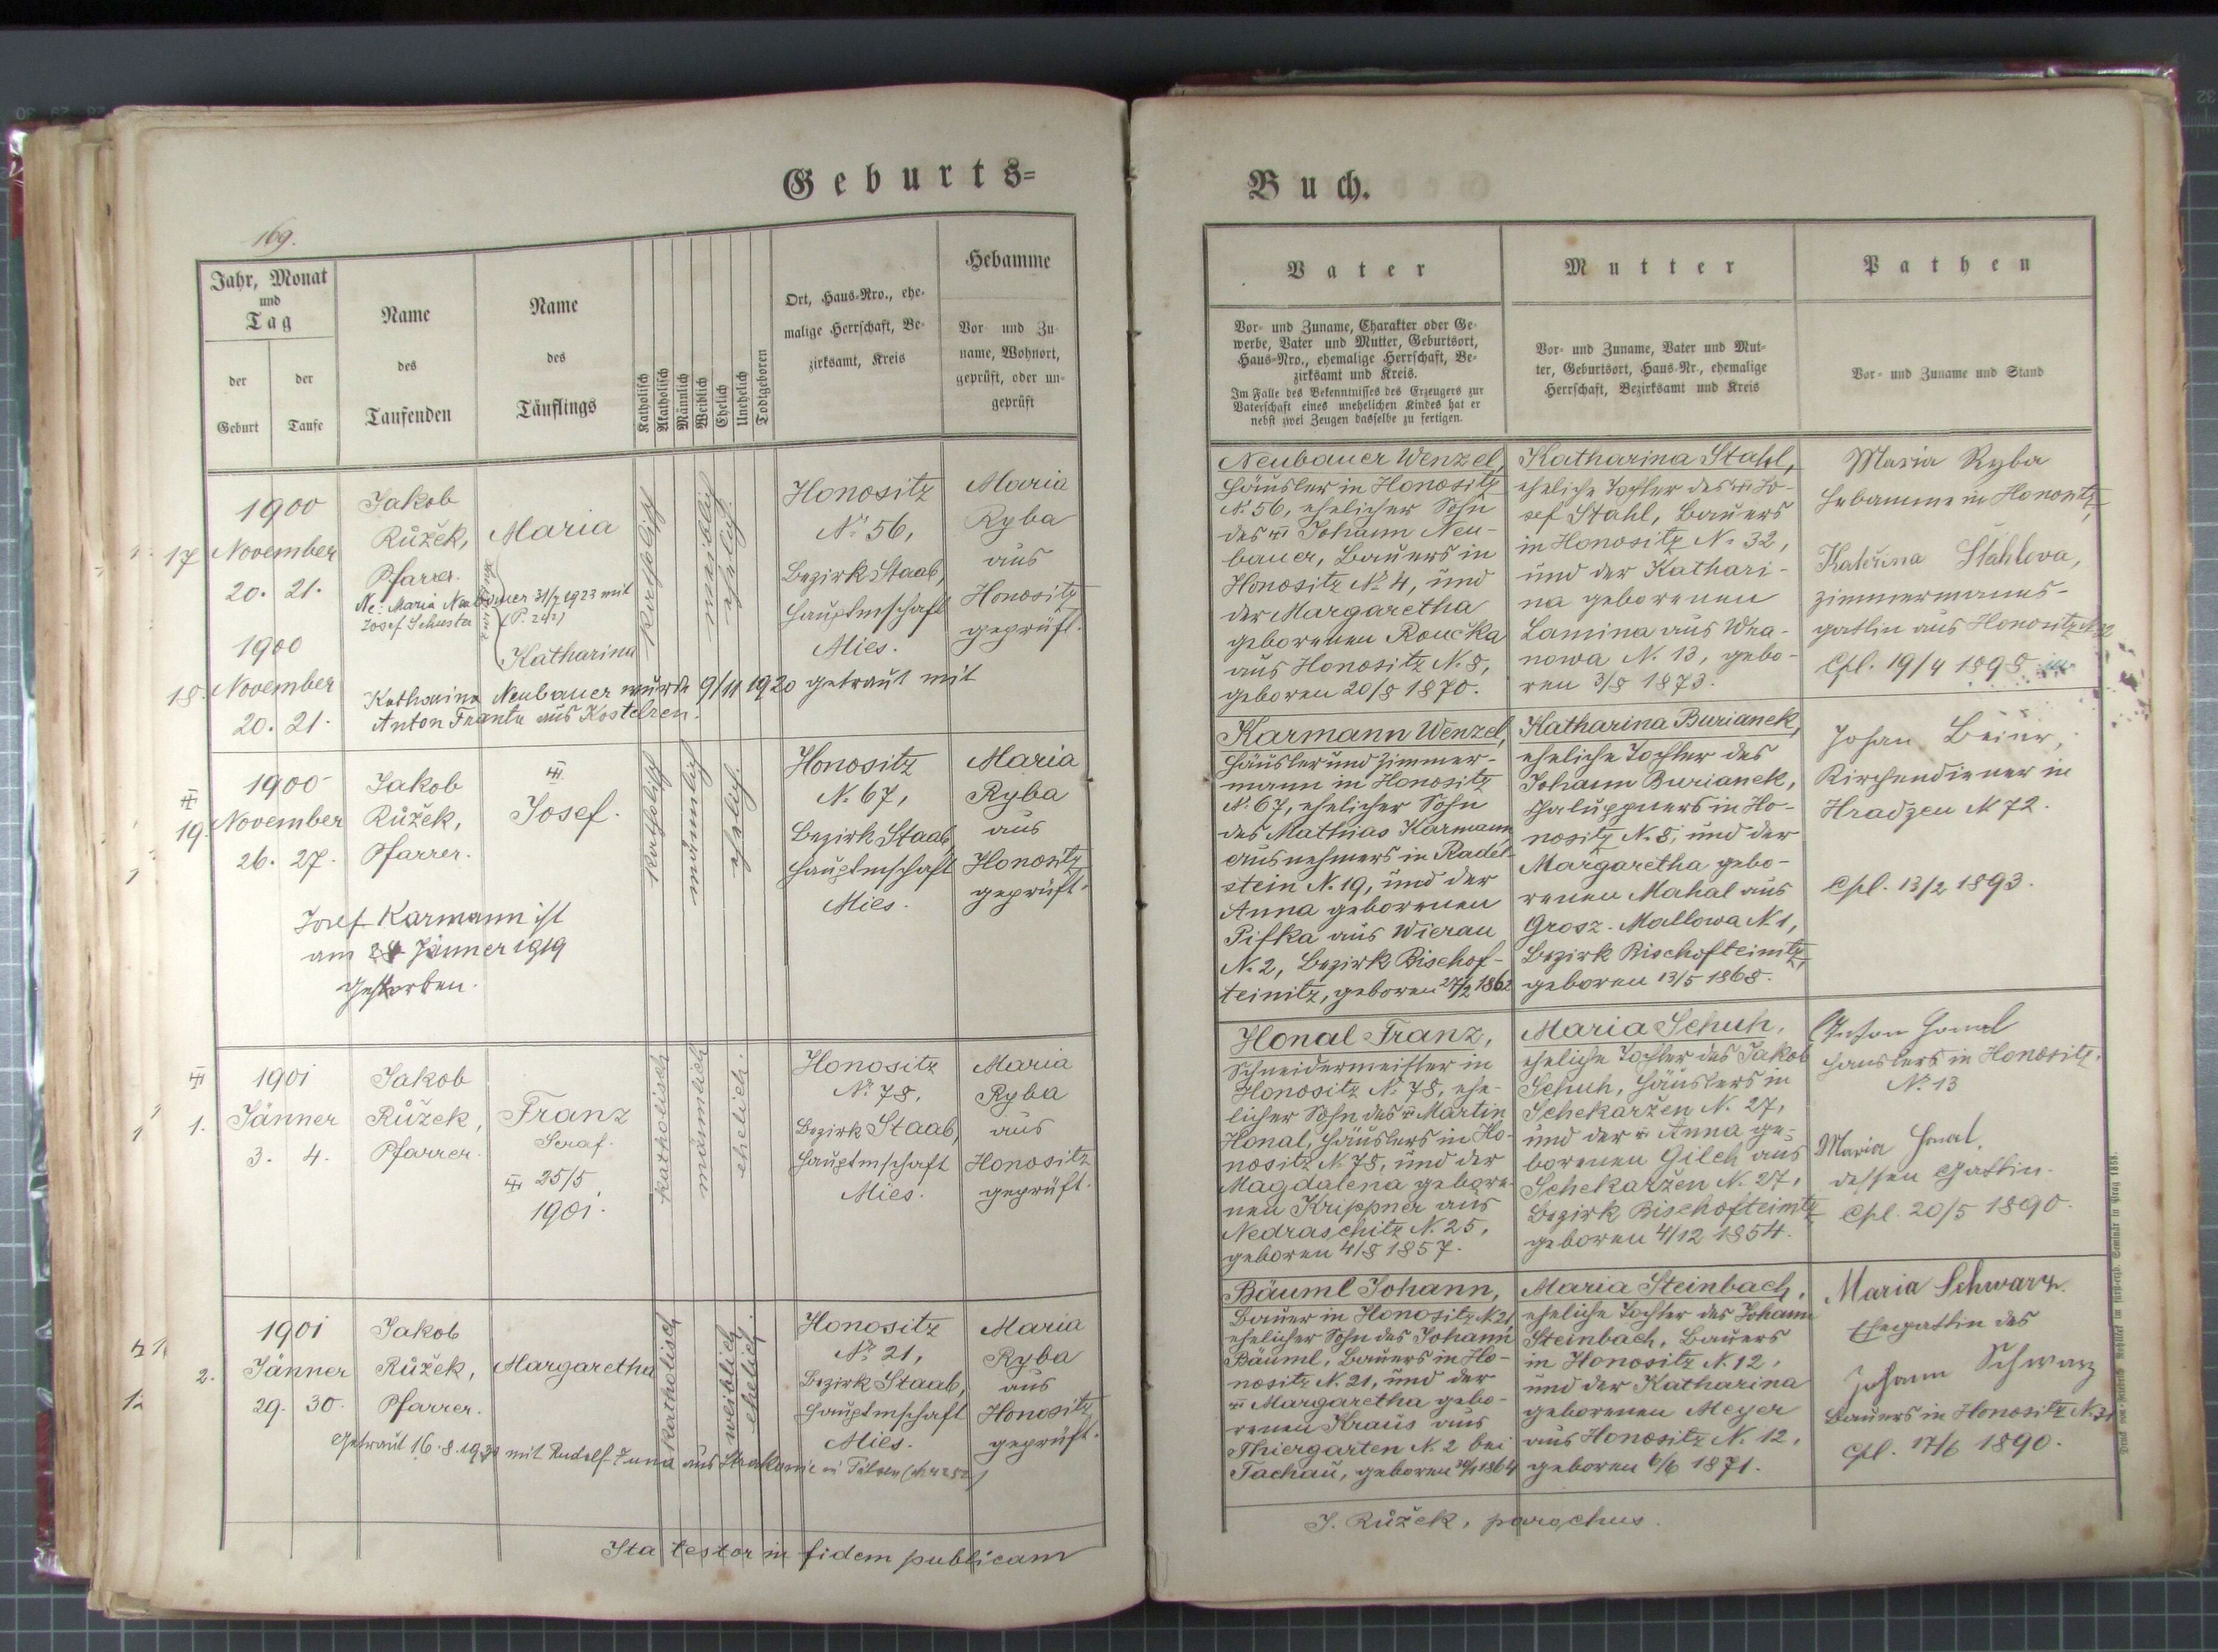 Geburts=
169.
Jahr, Monat
und
Tag
der
Geburt
der
Taufe
Name
des
Taufenden
Name
des
Täuflings
Katholisch
Akatholisch
Männlich
Weiblich
Ehelich
Unehelich
Todtgeboren
Ort, Haus-Nro., ehe-
malige Herrschaft, Be-
zirksamt, Kreis
Hebamme
Vor- und Zu-
name, Wohnort,
geprüft, oder un-
geprüft
17
1900
November
20. 21.
Jakob
Růžek,
Pfarrer.
Maria
Zwillinge
katholisch
weiblich
ehelich.
Honositz
No 56,
Bezirk Staab,
Hauptmschaft
Mies.
Maria
Ryba
aus
Honositz
geprüft.
Ne: Maria Neubauer 31/7 1923 mit
Josef Schuster (P. 242)
18.
1900
November
20. 21.
Katharina
Katharina Neubauer wurde 9/11 1920 getraut mit
Anton Franta aus Kostelzen.
19.
1900
November
26. 27.
Jakob
Růžek,
Pfarrer.
Josef.
katholisch
männlich
ehelich.
Honositz
N. 67,
Bezirk Staab,
Hauptmschaft
Mies.
Maria
Ryba
aus
Honositz
geprüft.
Josef Karmann ist
am 24 Jänner 1919
gestorben.
1.
1901
Jänner
3. 4.
Jakob
Růžek,
Pfarrer.
Franz
Seraf.
25/5
1901.
katholisch
männlich
ehelich.
Honositz
No 78,
Bezirk Staab,
Hauptmschaft
Mies.
Maria
Ryba
aus
Honositz
geprüft.
2.
1901
Jänner
29. 30.
Jakob
Růžek,
Pfarrer.
Margaretha
katholisch
weiblich
ehelich.
Honositz
No 21,
Bezirk Staab,
Hauptmschaft
Mies.
Maria
Ryba
aus
Honositz
geprüft.
Getraut 16.8.1930 mit Rudolf aus in Pilsen
Ita testor in fidem publicam
Buch.
Vater
Vor- und Zuname, Charakter oder Ge-
werbe, Vater und Mutter, Geburtsort,
Haus-Nro., ehemalige Herrschaft, Be-
zirksamt und Kreis.
Im Falle des Bekenntnisses des Erzeugers zur
Vaterschaft eines unehelichen Kindes hat er
nebst zwei Zeugen dasselbe zu fertigen.
Mutter
Vor- und Zuname, Vater und Mut-
ter, Geburtsort, Haus-Nr., ehemalige
Herrschaft, Bezirksamt und Kreis
Pathen
Vor- und Zuname und Stand
Neubauer Wenzel,
Häusler in Honositz
N. 56, ehelicher Sohn
des Johann Neu-
bauer, Bauers in
Honositz No 4, und
der Margaretha
geborenen Roučka
aus Honositz N. 8,
geboren 20/8 1870.
Katharina Stahl,
eheliche Tochter des Jo-
sef Stahl, Bauers
in Honositz No 32,
und der Kathari-
na geborenen
Lamina aus Wra-
nowa N. 13, gebo-
ren 3/8 1873.
Maria Ryba
Hebamme in Honositz,
Kateřina Stahlova,
Zimmermanns-
gattin aus Honositz N. 32
Cpl. 19/4 1898
Karmann Wenzel,
Häusler und Zimmer-
mann in Honositz
N. 67, ehelicher Sohn
des Mathias Karmann
Ausnehmers in Radel-
stein N. 19, und der
Anna geborenen
Pifka aus Wierau
N. 2, Bezirk Bischof-
teinitz, geboren 27/2 1862
Katharina Burianek,
eheliche Tochter des
Johann Burianek,
Chaluppners in Ho-
nositz N. 8, und der
Margaretha gebo-
renen Mahal aus
Grosz-Mallowa N 1,
Bezirk Bischofteinitz,
geboren 13/5 1868.
Johan Beier,
Kirchendiener in
Hradzen N 72.
Cpl. 13/2 1893.
Honal Franz,
Schneidermeister in
Honositz No 78, ehe-
licher Sohn des Martin
Honal, Häuslers in Ho-
nositz N. 78, und der
Magdalena gebore-
nen Krippner aus
Nedraschitz N. 25,
geboren 4/8 1857.
Maria Schuh,
eheliche Tochter des Jakob
Schuh, Häuslers in
Schekaržen N. 27,
und der Anna ge-
borenen Gilch aus
Schekaržen N. 27,
Bezirk Bischofteinitz
geboren 4/12 1854.
Anton Honal
Häuslers in Honositz,
No 13
Maria Honal,
dessen Gattin.
Cpl. 20/5 1890.
Bäuml Johann,
Bauer in Honositz N 21,
ehelicher Sohn des Johann
Bäuml, Bauers in Ho-
nositz N. 21, und der
Margaretha gebo-
renen Kraus aus
Thiergarten N. 2 bei
Tachau, geboren 1864
Maria Steinbach,
eheliche Tochter des Johann
Steinbach, Bauers
in Honositz N. 12,
und der Katharina
geborenen Meyer
aus Honositz N. 12,
geboren 6/6 1871.
Maria Schwarz
Ehegattin des
Johann Schwarz
Bauers in Honositz N. 31
Cpl. 17/6 1890.
J. Růžek, parochus.